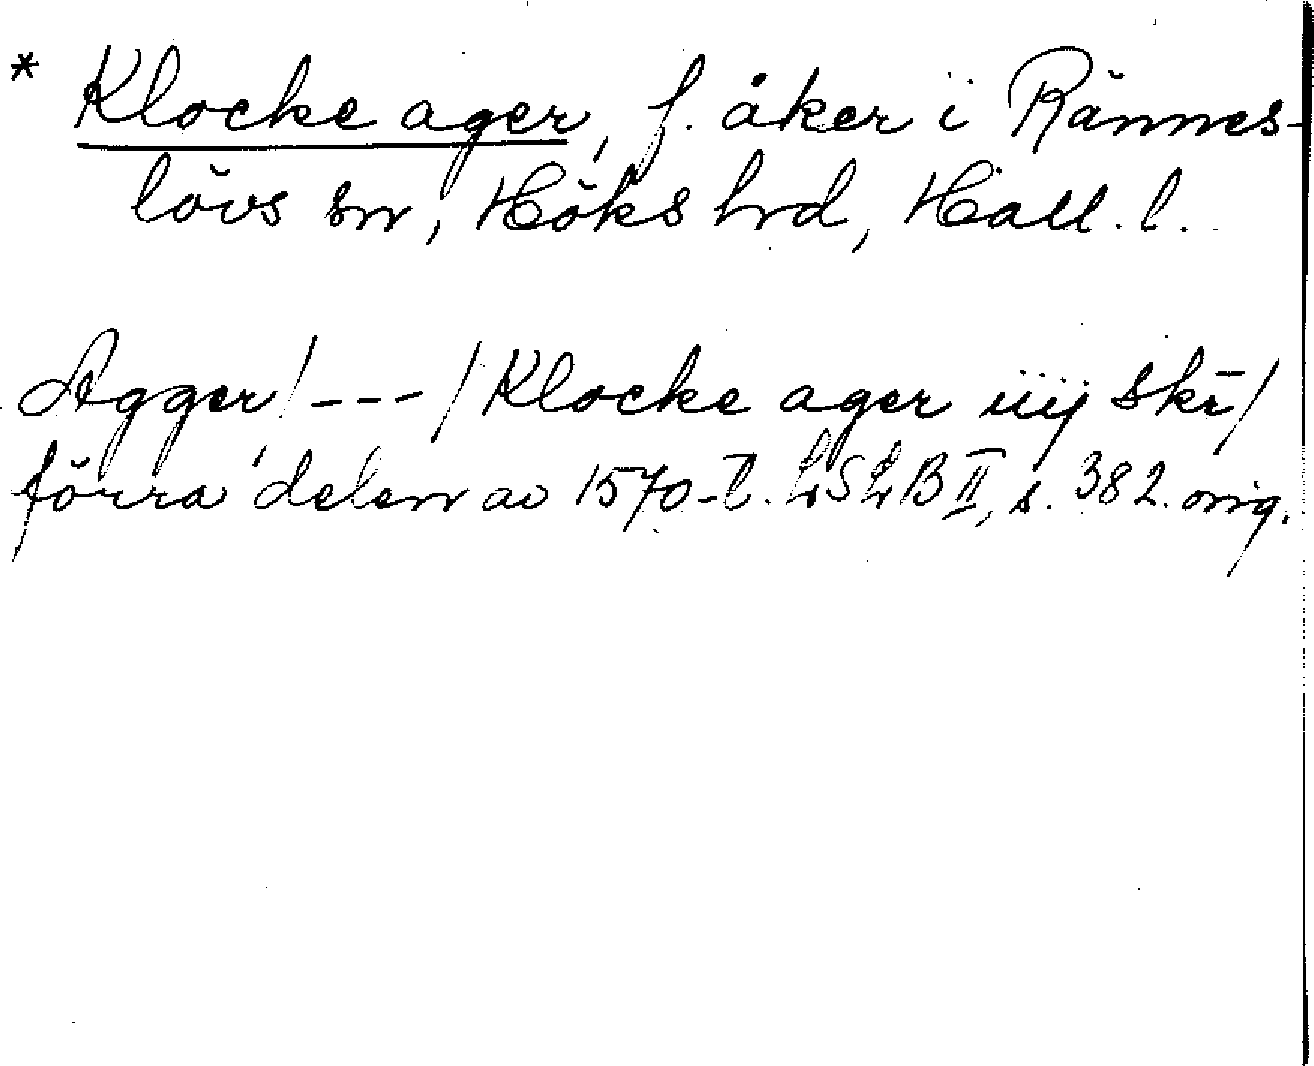 * Klocke ager, f. åker i Rännes-
lövs sn, Höks hrd, Hall. l.
Agger/---/Klocke ager iiij skr̄/
förra delen av 1570-t. LSLB II, s. 382. orig.